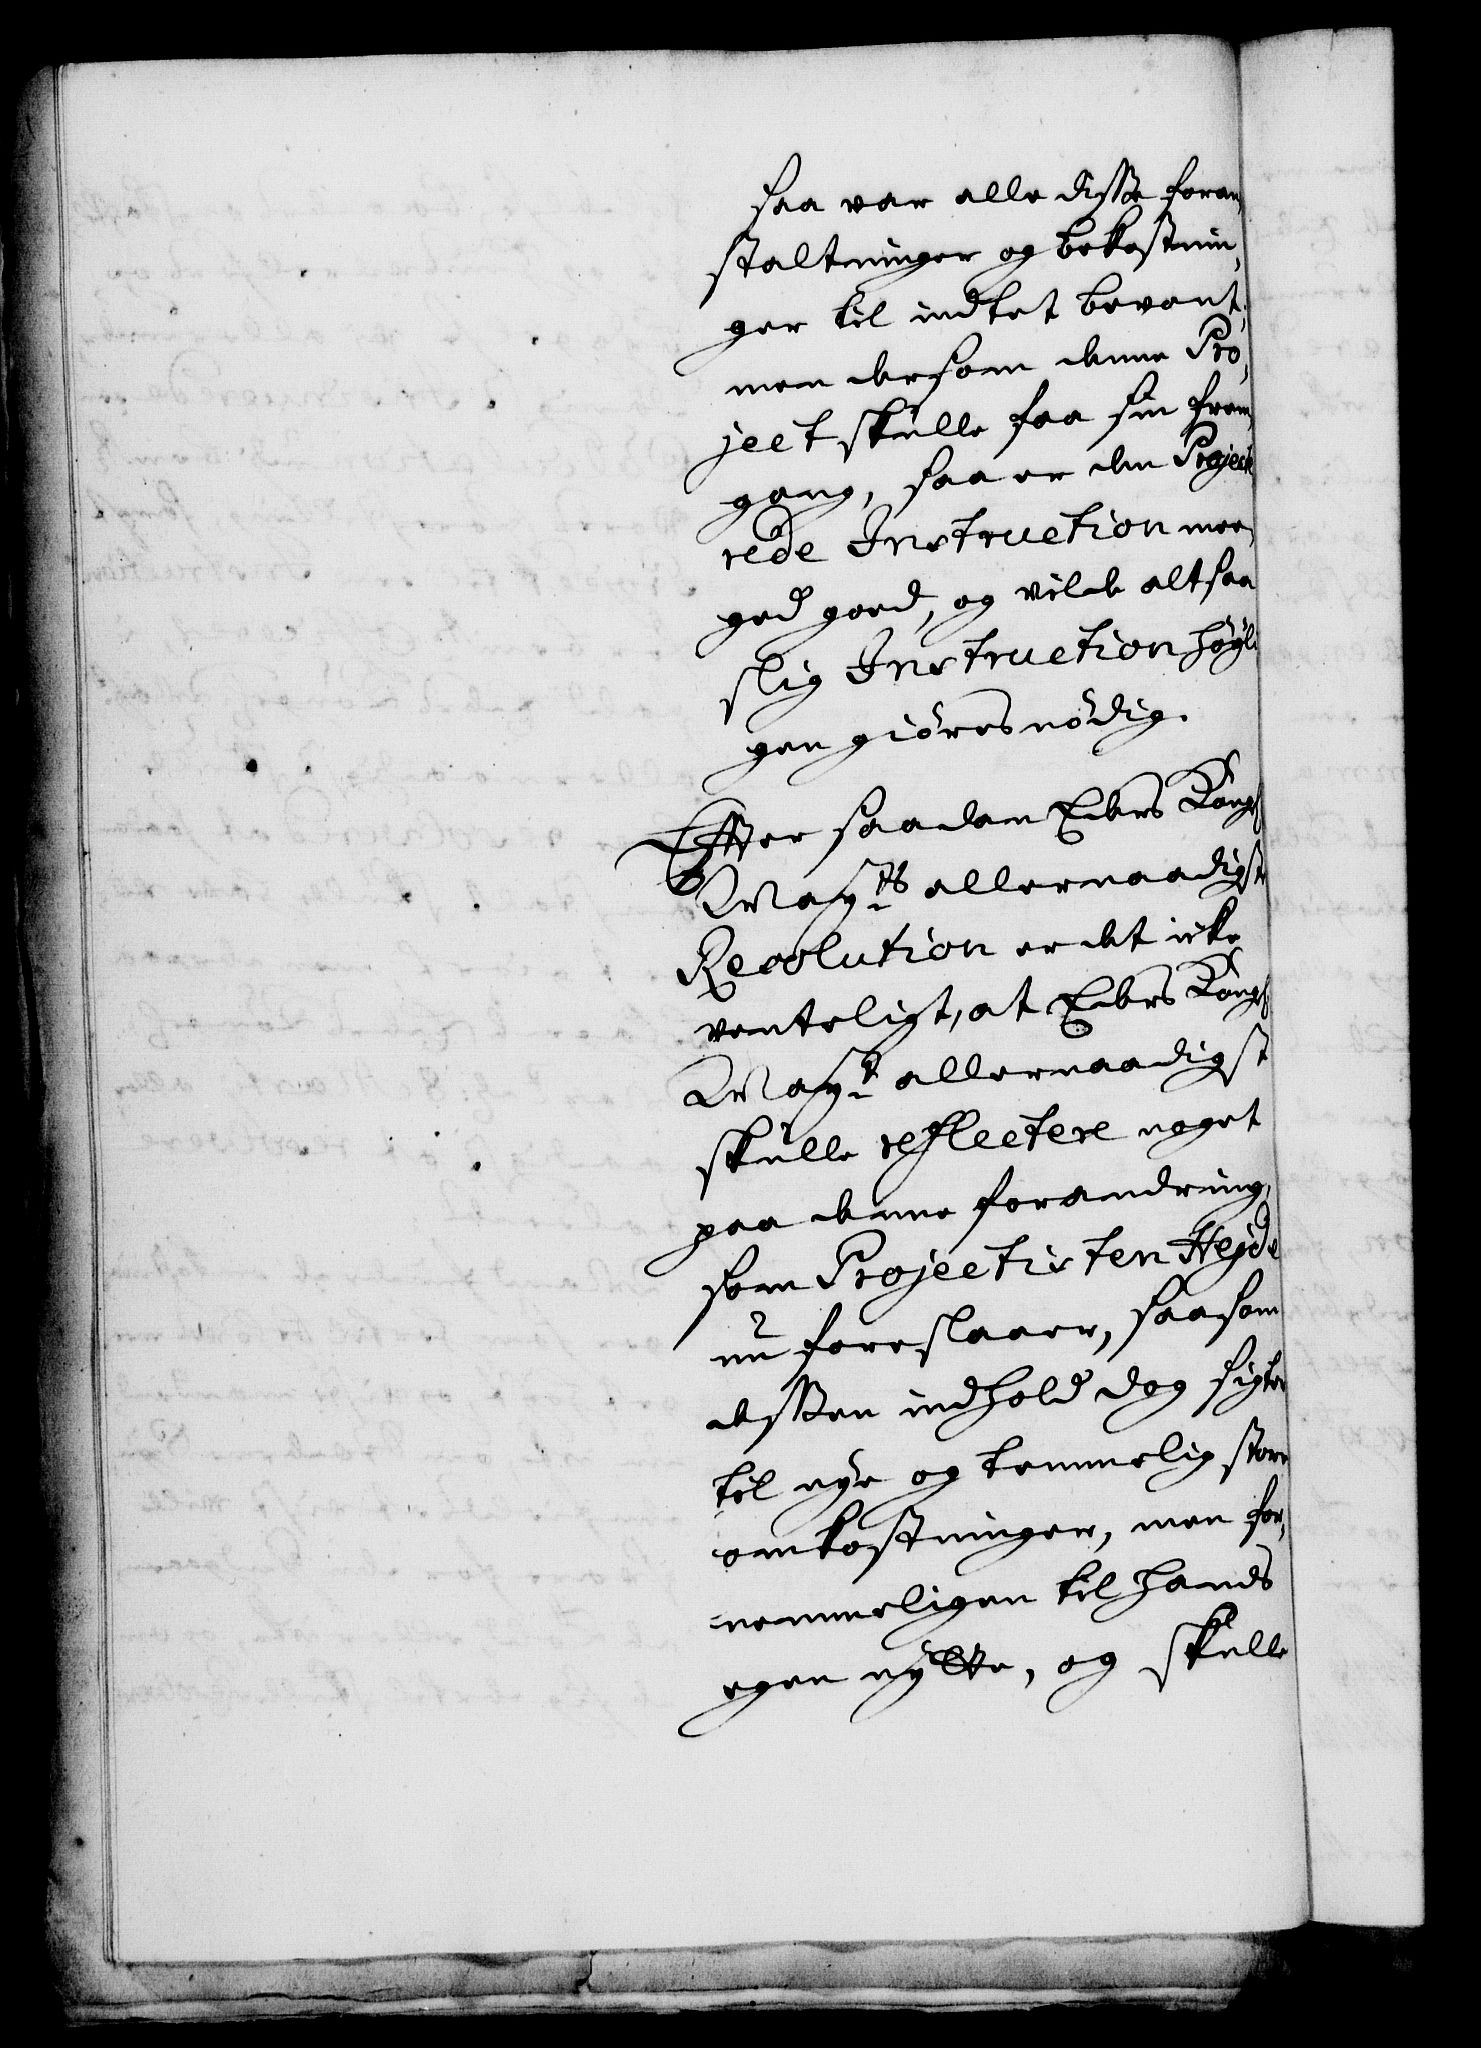 saa var alle disse foran,
staltninger og bekostnin,
ger til indtet bevant;
men dersom denne Pro,
ject skulle faa sin frem,
gang, saa er den Projecte
rede Instruction mee,
ged goed, og vilde altsaa
slig Instruction høyli
gen giøres nødig.
Effter saadan Eders Kongl
Mayts allernaadigste
Resolution er det icke
venteligt, at Eders Kongl
Mayt allernaadigst
skulle reflectere noget
paa denne forandring,
som Projectisten Heyde
nu foreslaaer, saasom
dessen indhold dog sigter
til nye og temmelig store
omkostninger, men for,
nemmeligen til hands
egen nytte, og skulle